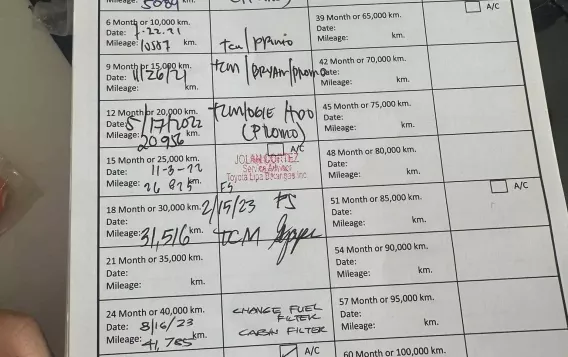 Mileage: 5084 km.
6 Month or 10,000 km.
Date: 7.22.21
Mileage: 10587 km.
tcm/
9 Month or 15,000 km.
Date: 11/26/21
Mileage: km.
TCM/BRYAN/PROMO
12 Month or 20,000 km.
Date: 5/17/2022
Mileage: 20956 km.
TCM/OGIE
(PROMO)
A/C
15 Month or 25,000 km.
Date: 11-3-22
Mileage: 26 825 km.
JOLAN CORTEZ
Service Advisor
Toyota Lipa Batangas Inc.
FS
18 Month or 30,000 km.
Mileage: 31,516 km.
2/15/23 FS
TCM
21 Month or 35,000 km.
Date:
Mileage: km.
24 Month or 40,000 km.
Date: 8/16/23
Mileage: 41,785 km.
CHANGE FUEL
FILTER
CABIN FILTER
A/C
A/C
39 Month or 65,000 km.
Date:
Mileage: km.
42 Month or 70,000 km.
Date:
Mileage: km.
45 Month or 75,000 km.
Date:
Mileage: km.
48 Month or 80,000 km.
Date:
Mileage: km.
A/C
51 Month or 85,000 km.
Date:
Mileage: km.
54 Month or 90,000 km.
Date:
Mileage: km.
57 Month or 95,000 km.
Date:
Mileage: km.
60 Month or 100,000 km.